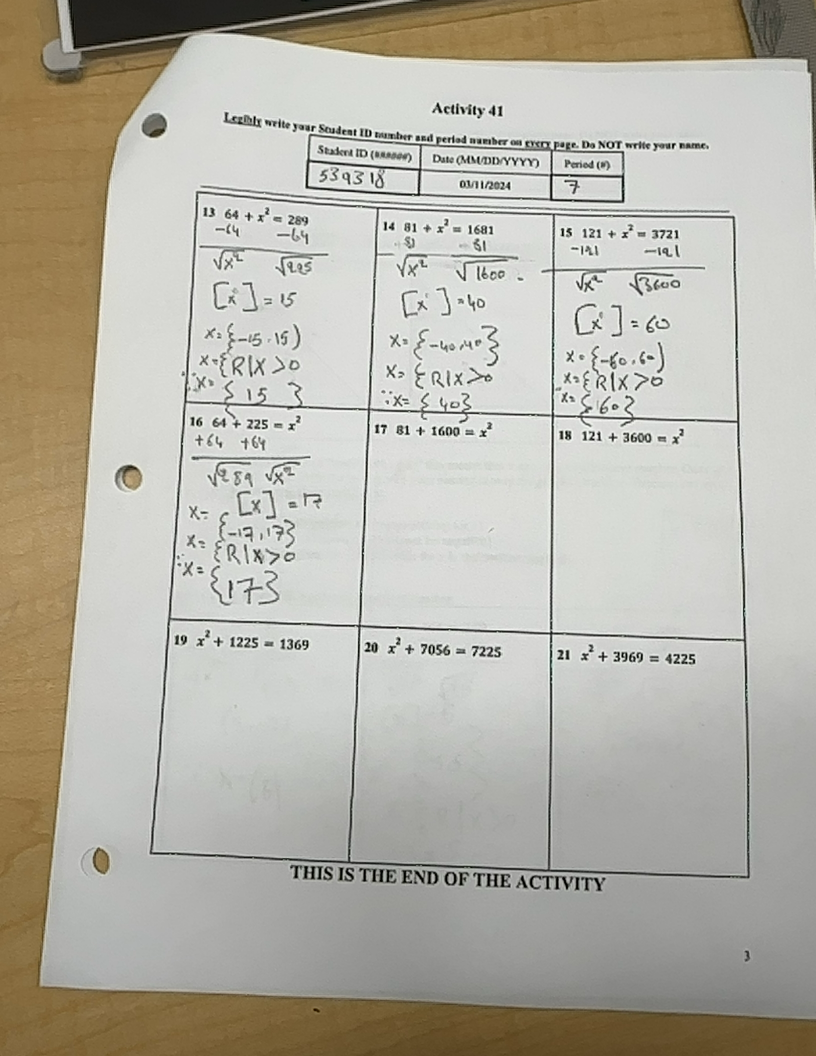 Activity 41
Legibly write your Student ID number and period number on every page. Do NOT write your name.
Student ID (######) Date (MM/DD/YYYY) Period (#)
539318 03/11/2024 7
13 64 + x² = 289
-64 -64
√x² √225
[x] = 15
x = {-15, 15)
x = {R|X>0
∴x = {15}
14 81 + x² = 1681
81 81
√x² √1600
[x] = 40
x = {-40,40}
x = {R|X>0
∴x = {40}
15 121 + x² = 3721
-121 -121
√x² √3600
[x] = 60
x = {-60,60)
x = {R|X>0
∴x = {60}
16 64 + 225 = x²
+64 +64
√289 √x²
[x] = 17
x = {-17,17}
x = {R|x>0
∴x = {17}
17 81 + 1600 = x²
18 121 + 3600 = x²
19 x² + 1225 = 1369
20 x² + 7056 = 7225
21 x² + 3969 = 4225
THIS IS THE END OF THE ACTIVITY
3